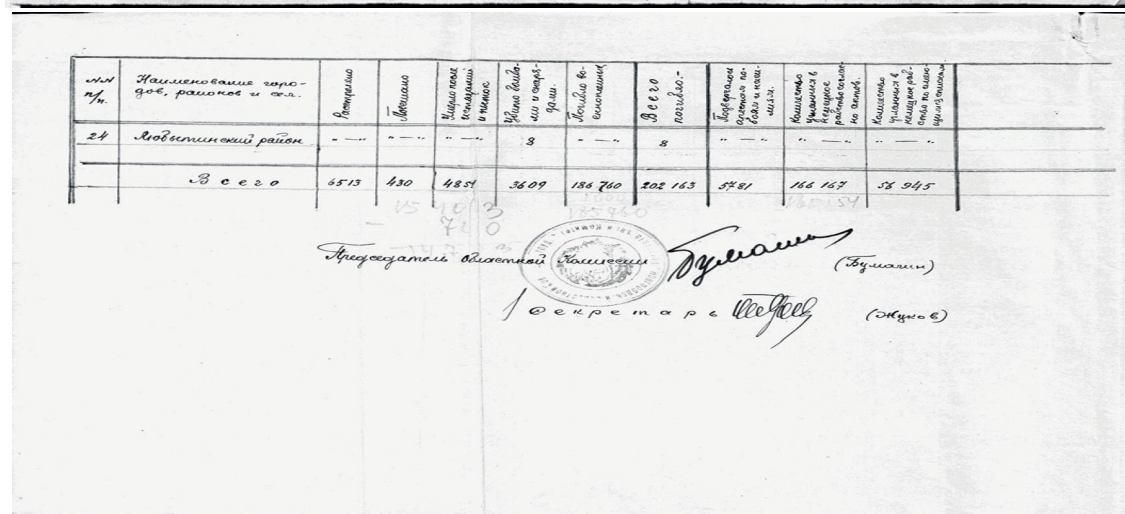 NN п/п. Наименование горо- дов, районов и сел. Расстреляно Повешано Умерло после истязаний и пыток Убито бомба- ми и снаря- дами. Погибло во- еннопленных Всего погибло:- Подвергалось арестам по- боям и наси- лиям. Количество угнанных в немецкое рабство соглас- но актов. Количество угнанных в немецкое раб- ство по
24 Любытинский район " — " " — " " — " 8 " — " 8 " — " " — " " — "
Всего 6513 430 4851 3609 186 760 202 163 5781 166 167 56 945
15 40 3
185960
166154
– 72 0
Председатель областной Комиссии (Бумагин)
Секретарь (Жуков)